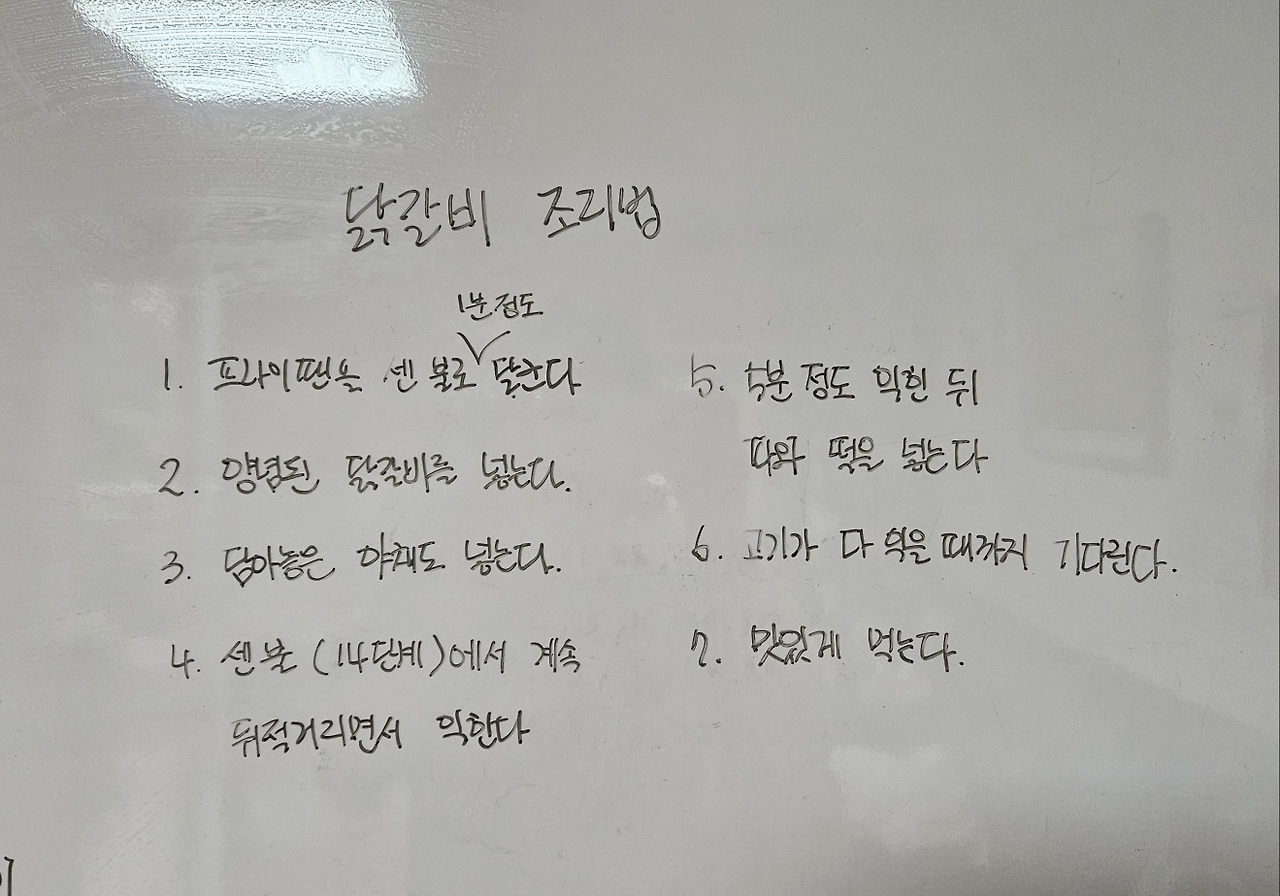 닭갈비 조리법
1분 정도
1. 프라이팬을 센 불로 ∨ 달군다
2. 양념된 닭갈비를 넣는다.
3. 담아놓은 야채도 넣는다.
4. 센 불 (14단계)에서 계속
뒤적거리면서 익힌다
5. 5분 정도 익힌 뒤
파와 떡을 넣는다
6. 고기가 다 익을 때까지 기다린다.
7. 맛있게 먹는다.